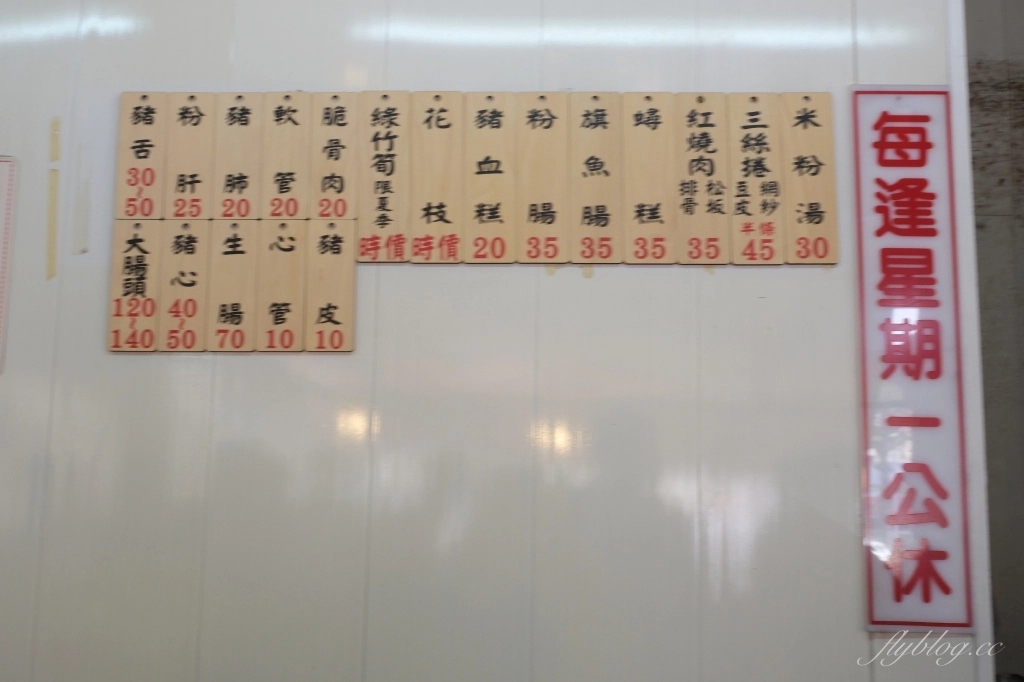 米粉湯 30
三絲捲 網紗 豆皮 半條 45
紅燒肉 松坂 排骨 35
蟳糕 35
旗魚腸 35
粉腸 35
豬血糕 20
花枝 時價
綠竹筍 限夏季 時價
脆骨肉 20
軟管 20
豬肺 20
粉肝 25
豬舌 30~50
豬皮 10
心管 10
生腸 70
豬心 40~50
大腸頭 120~140
每逢星期一公休
flyblog.cc